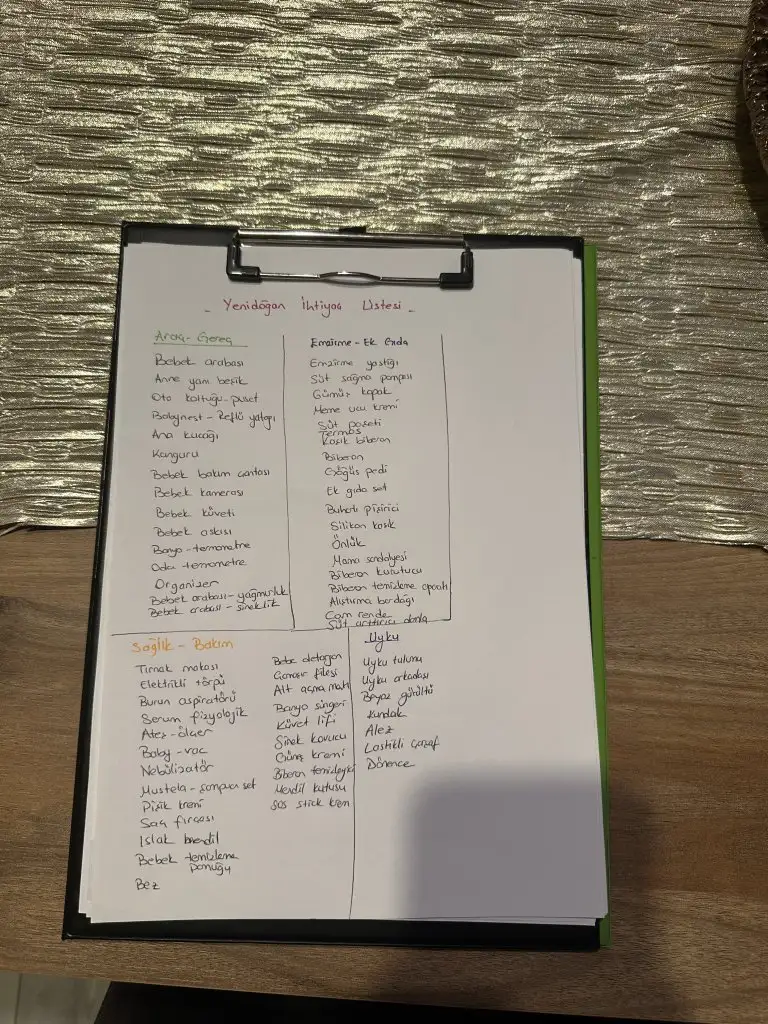 - Yenidoğan İhtiyaç Listesi -
Araç - Gereç
Bebek arabası
Anne yanı beşik
Oto koltuğu - puset
Babynest - Reflü yatağı
Ana kucağı
Kanguru
Bebek bakım çantası
Bebek kamerası
Bebek küveti
Bebek askısı
Banyo - termometre
Oda termometre
Organizer
Bebek arabası - yağmurluk
Bebek arabası - sineklik
Emzirme - Ek Gıda
Emzirme yastığı
Süt sağma pompası
Gümüş kapak
Meme ucu kremi
Süt poşeti
Termos
Kaşık biberon
Biberon
Göğüs pedi
Ek gıda set
Buharlı pişirici
Silikon kaşık
Önlük
Mama sandalyesi
Biberon kurutucu
Biberon temizleme aparatı
Alıştırma bardağı
Cam rende
Süt arttırıcı
Sağlık - Bakım
Tırnak makası
Elektrikli törpü
Burun aspiratörü
Serum fizyolojik
Ateş - ölçer
Baby - vac
Nebülizatör
Mustela - şampuan set
Pişik kremi
Saç fırçası
Islak mendil
Bebek temizleme
pamuğu
Bez
Bebe detarjan
Çamaşır filesi
Alt açma matı
Banyo süngeri
Küvet lifi
Sinek kovucu
Güneş kremi
Biberon temizleyici
Mendil kutusu
SOS stick krem
Uyku
Uyku tulumu
Uyku arkadaşı
Beyaz gürültü
Kundak
Alez
Lastikli çarşaf
Dönence